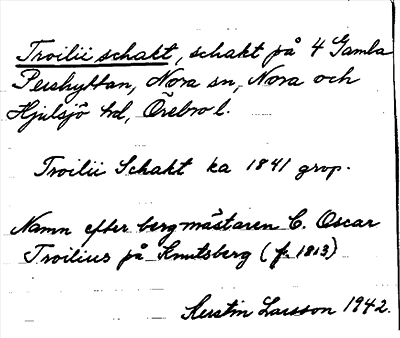 Troilii schakt, schakt på 4 Gamla
Pershyttan, Nora sn, Nora och
Hjulsjö hd, Örebro l.
Troilii Schakt ka 1841 grop.
Namn efter bergmästaren C. Oscar
Troilius på Knutsberg (f. 1813)
Kerstin Larsson 1942.